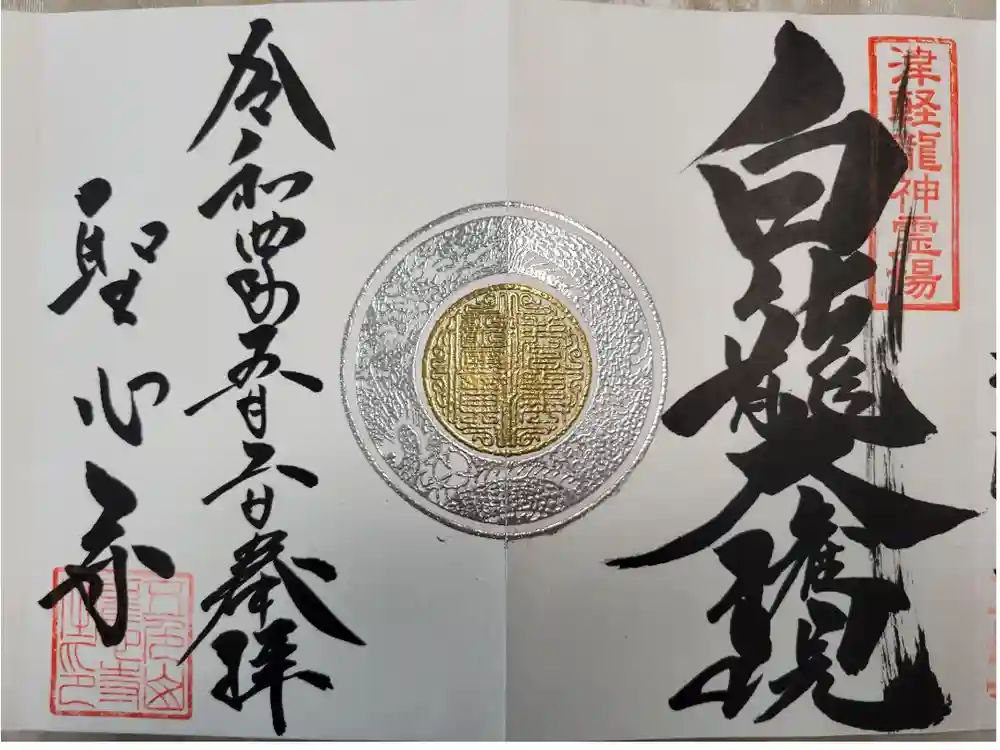 津軽龍神霊場
白龍大権現
令和四年五月 日奉拝
聖心寺